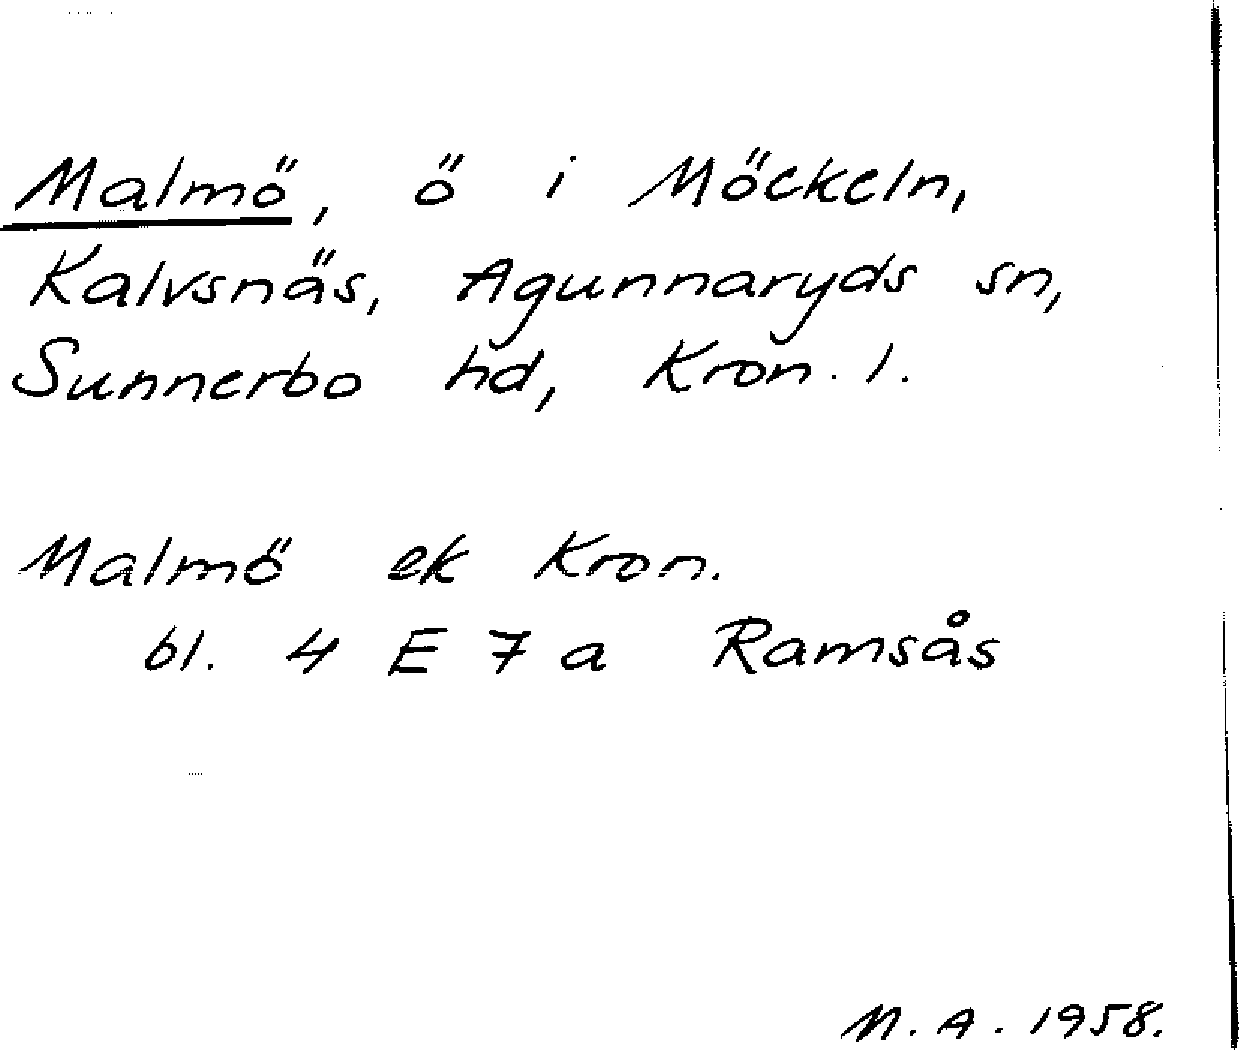 Malmö, ö i Möckeln,
Kalvsnäs, Agunnaryds sn,
Sunnerbo hd, Kron. l.
Malmö ek Kron.
bl. 4 E 7 a Ramsås
M. A. 1958.